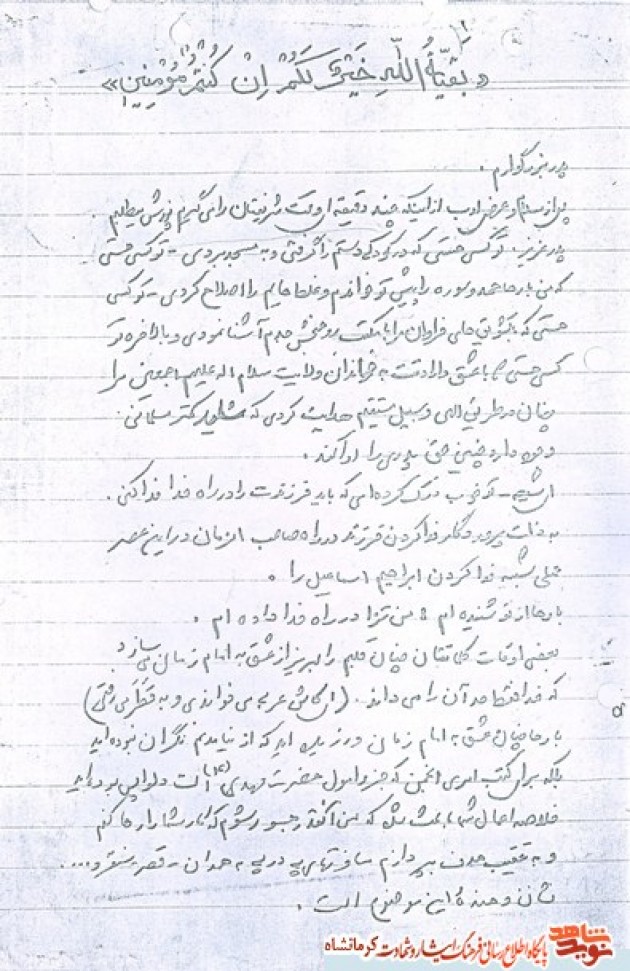 «بَقیَّةُ اللهِ خَیْرٌ لَکُمْ اِنْ کُنْتُمْ مُؤمِنین»
پدر بزرگوارم.
پس از سلام و عرض ادب از اینکه چند دقیقه ای وقت شریفتان را می گیرم پوزش میطلبم.
پدر عزیز: تو کسی هستی که در کودکی دستم را گرفتی و به مسجد بردی - تو کسی هستی
که من بارها حمد و سوره را پیش تو خواندم و غلط هایم را اصلاح کردی - تو کسی
هستی که با تشویق های فراوان مرا با مکتب آشنا نمودی و بالاخره تو
کسی هستی که با عشق و ارادت به خاندان ولایت سلام اله علیهم اجمعین مرا
چنان در طریق الهی و سبیل مستقیم هدایت کردی که شاید کمتر مسلمانی
وجود دارد چنین حق پدری را ادا کند.
ای شیعه - تو خوب درک کرده ای که باید فرزندت را در راه خدا فدا کنی.
به ذات پروردگار فدا کردن فرزند در راه صاحب الزمان در این عصر
خیلی شبیه فدا کردن ابراهیم اسماعیل را.
بارها از تو شنیده ام که من ترا در راه خدا داده ام.
بعضی اوقات کلماتتان چنان قلبم را لبریز از عشق به امام زمان می سازد
که خدا فقط حد آن را می داند. (ای کاش عربی می خواندی و به قَطَر می رفتی)
بارها چنان عشق به امام زمان ورزیده اید که از نیامدنم نگران نبوده اید
بلکه برای کتب امری انجمن که جزو اموال حضرت مهدی (ع) است دلواپس بوده اید
خلاصه اعمال شما باعث شد که من آنقدر جسور شوم که کار شما را رها کنم
و به تعقیب هدف بپردازم مسافرتهای پی در پی به همدان - قصر - سنقر و....
نشان دهندهٔ این موضوع است.
نوید شاهد
پایگاه اطلاع رسانی فرهنگ ایثار و شهادت کرمانشاه